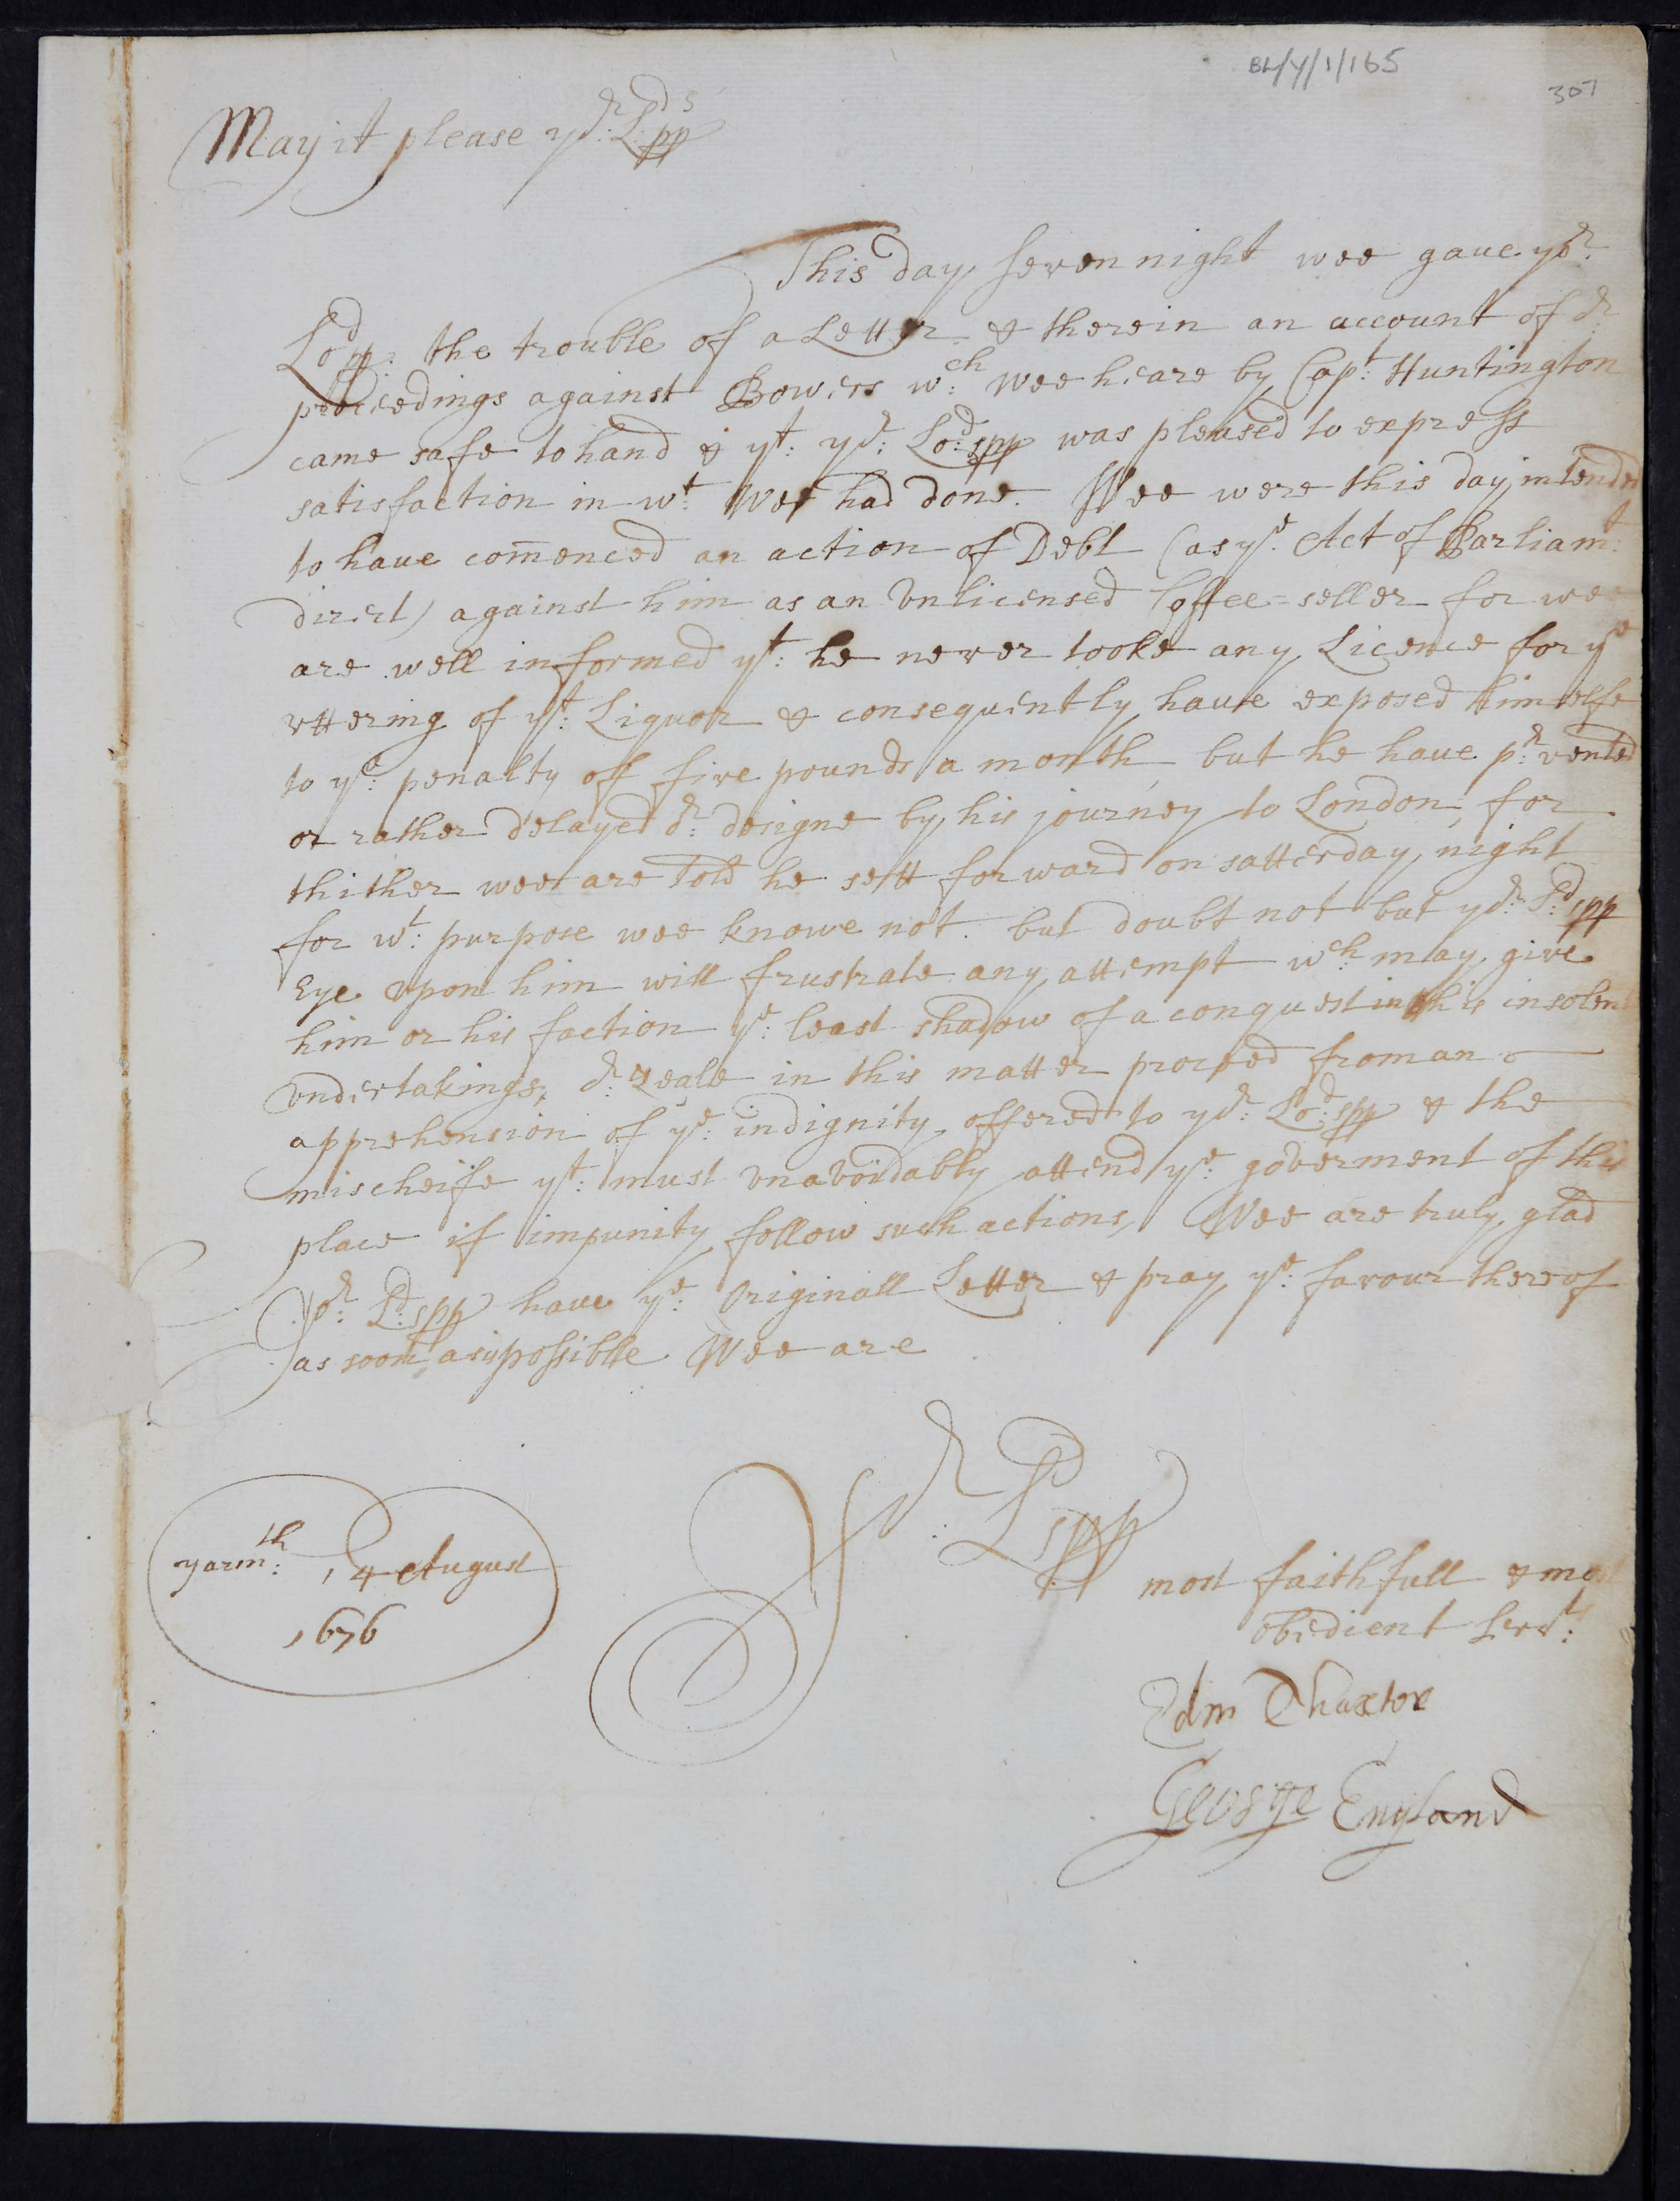 BL/Y/1/165
307
May it please yor: Ldspp
This day seven night wee gave yor:
Lodpp: the trouble of a Letter & therein an account of or:
proceedings against Bowers wch: wee heare by Capt: Huntington
came safe to hand & yt: yor: Lodspp was pleased to express
satisfaction in wt: Wee had done. Wee were this day intended
to haue com̄enced an action of Debt (as ye: Act of Parliamt:
direct) against him as an vnlicensed Coffee=seller for wee
are well informed yt: he never tooke any Licence for ye
vttering of yt: Liquor & consequently haue exposed himselfe
to ye: penalty off five pounds a month, but he have pr:vented
or rather delayed or: designe by his journey to London, for
thither wee are told he sett forward on satterday night
for wt: purpose wee knowe not. but doubt not but yor: Ldspp
Eye vpon him will frustrate any attempt wch: may give
him or his faction ye: least shadow of a conquest in this insolent
vndertakings, or: zeale in this matter proceed from an
apprehension of ye: indignity offered to yor: Lodspp & the
mischeife yt: must vnavoidably attend ye: goverment of this
place if impunity follow such actions, Wee are truly glad
Yor: Ldspp have ye: Originall Letter & pray ye: favour thereof
as soon as possible Wee are
Yor: Ldspp
most faithfull & most
obedient servt:
Yarmth: 14 August
1676
Edm Thaxter
George England